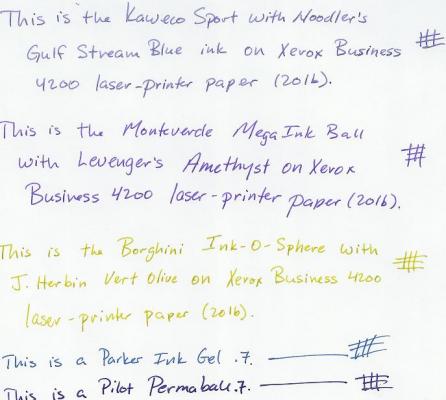 This is the Kaweco Sport with Noodler's
Gulf Stream Blue ink on Xerox Business
4200 laser-printer paper (20lb).
This is the Monteverde Mega Ink Ball
with Levenger's Amethyst on Xerox
Business 4200 laser-printer paper (20lb).
This is the Borghini Ink-O-Sphere with
J. Herbin Vert Olive on Xerox Business 4200
laser-printer paper (20lb).
This is a Parker Ink Gel .7.
This is a Pilot Permaball.7.